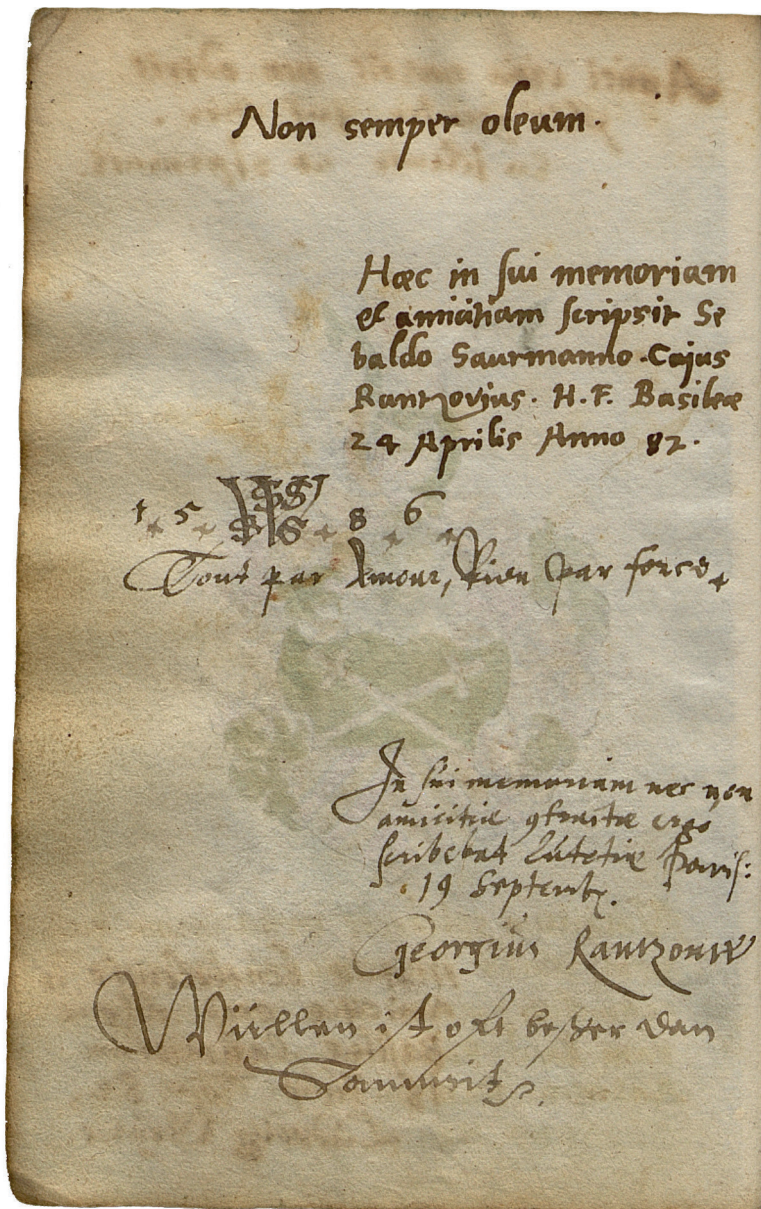 Non semper oleum.
Hæc in sui memoriam
et amicitiam scripsit Se
baldo Saurmanno. Cajus
Rantzovius. H. F. Basileæ
24 Aprilis Anno 82.
1 . 5 . 8 . 6 .
Tout par Amour, Rien par force.
In sui memoriam nec non
amicitiæ ergo
scribebat Lutetiæ Paris:
19 Septemb.
Georgius Rantzouw
Wüllen ist oft beßer dan
Sammit